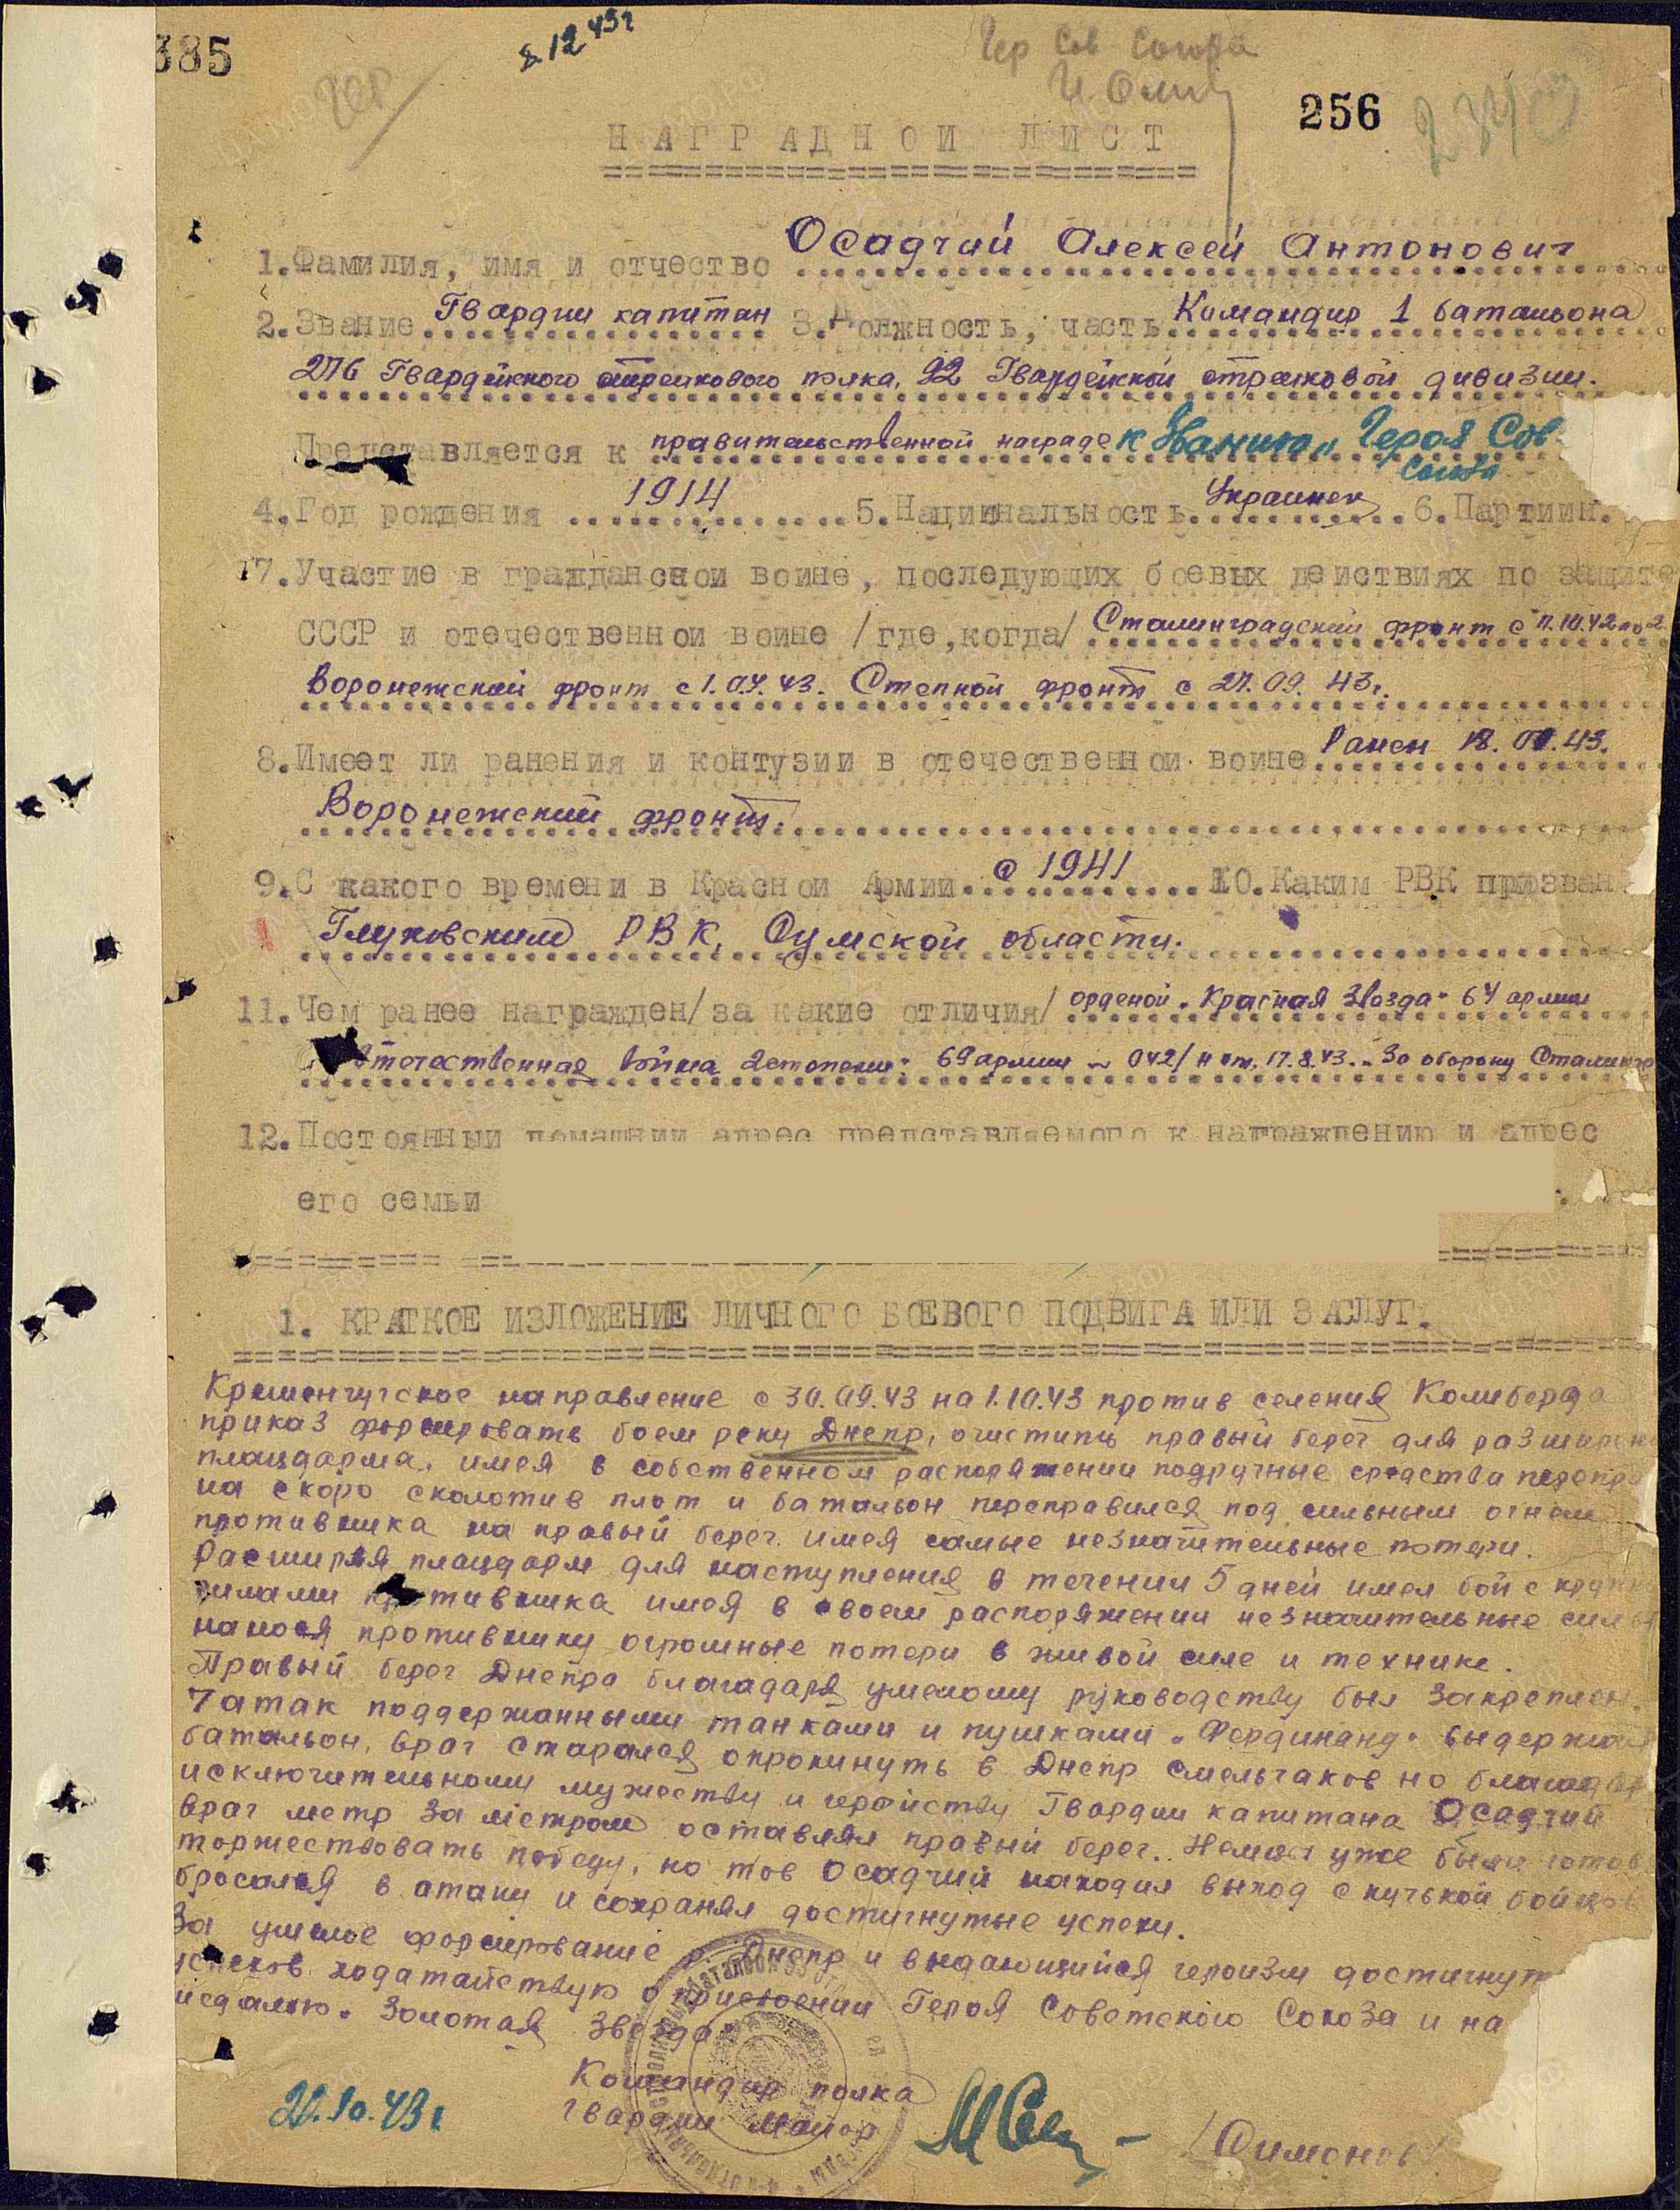 385
12 43г
Гер Сов Союза
256
НАГРАДНОЙ ЛИСТ
1.Фамилия, имя и отчество Осадчий Алексей Антонович
2.Звание Гвардии капитан 3.Должность, часть Командир 1 батальона
276 Гвардейского стрелкового полка, 92 Гвардейской стрелковой дивизии.
Представляется к правительственной награде к званию „Героя Сов
Союза
4.Год рождения 1914 5.Национальность Украинец 6.Партийн.
17.Участие в гражданской войне, последующих боевых действиях по защите
СССР и отечественной войне /где,когда/ Сталинградский фронт с 11.10.42 по 2
Воронежский фронт с 1.07.43. Степной фронт с 27.09.43г.
8.Имеет ли ранения и контузии в отечественной войне Ранен 18.07.43.
Воронежский фронт.
9.С какого времени в Красной Армии с 1941 10.Каким РВК призван
Глуховским РВК, Сумской области.
11.Чем ранее награжден/за какие отличия/ орденой „Красная Звезда" 64 армии
Отечественная война 2 степени" 69 армии 042/н от 17.8.43. „За оборону Сталингр
12.Постоянный домашний адрес представляемого к награждению и адрес
его семьи
1. КРАТКОЕ ИЗЛОЖЕНИЕ ЛИЧНОГО БОЕВОГО ПОДВИГА ИЛИ ЗАСЛУГ.
Кременчугское направление с 30.09.43 на 1.10.43 против селения Колиберда
приказ форсировать боем реку Днепр, очистить правый берег для расширен
плацдарма. имея в собственном распоряжении подручные средства перепра
на скоро сколотив плот и батальон переправился под сильным огнем
противника на правый берег. имея самые незначительные потери.
Расширяя плацдарм для наступления в течении 5 дней имел бой с крупн
силами противника имея в своем распоряжении незначительные силы
нанося противнику огромные потери в живой силе и технике.
Правый берег Днепра благадаря умелому руководству был закреплен.
7 атак поддержанными танками и пушками „Фердинанд" выдержал
батальон, враг старался опрокинуть в Днепр смельчаков но благадар
исключительному мужеству и геройству Гвардии капитана Осадчий
враг метр за метром оставлял правый берег. Немцы уже были готов
торжествовать победу, но тов Осадчий находил выход с кучькой бойцов
бросался в атаку и сохранял достигнутые успехи.
За умелое форсирование р. Днепр и выдающийся героизм достигнут
успехов ходатайствую о присвоении Героя Советского Союза и на
медалью „Золотая Звезда"
Командир полка
гвардии майор
/Симонов/
21.10.43г